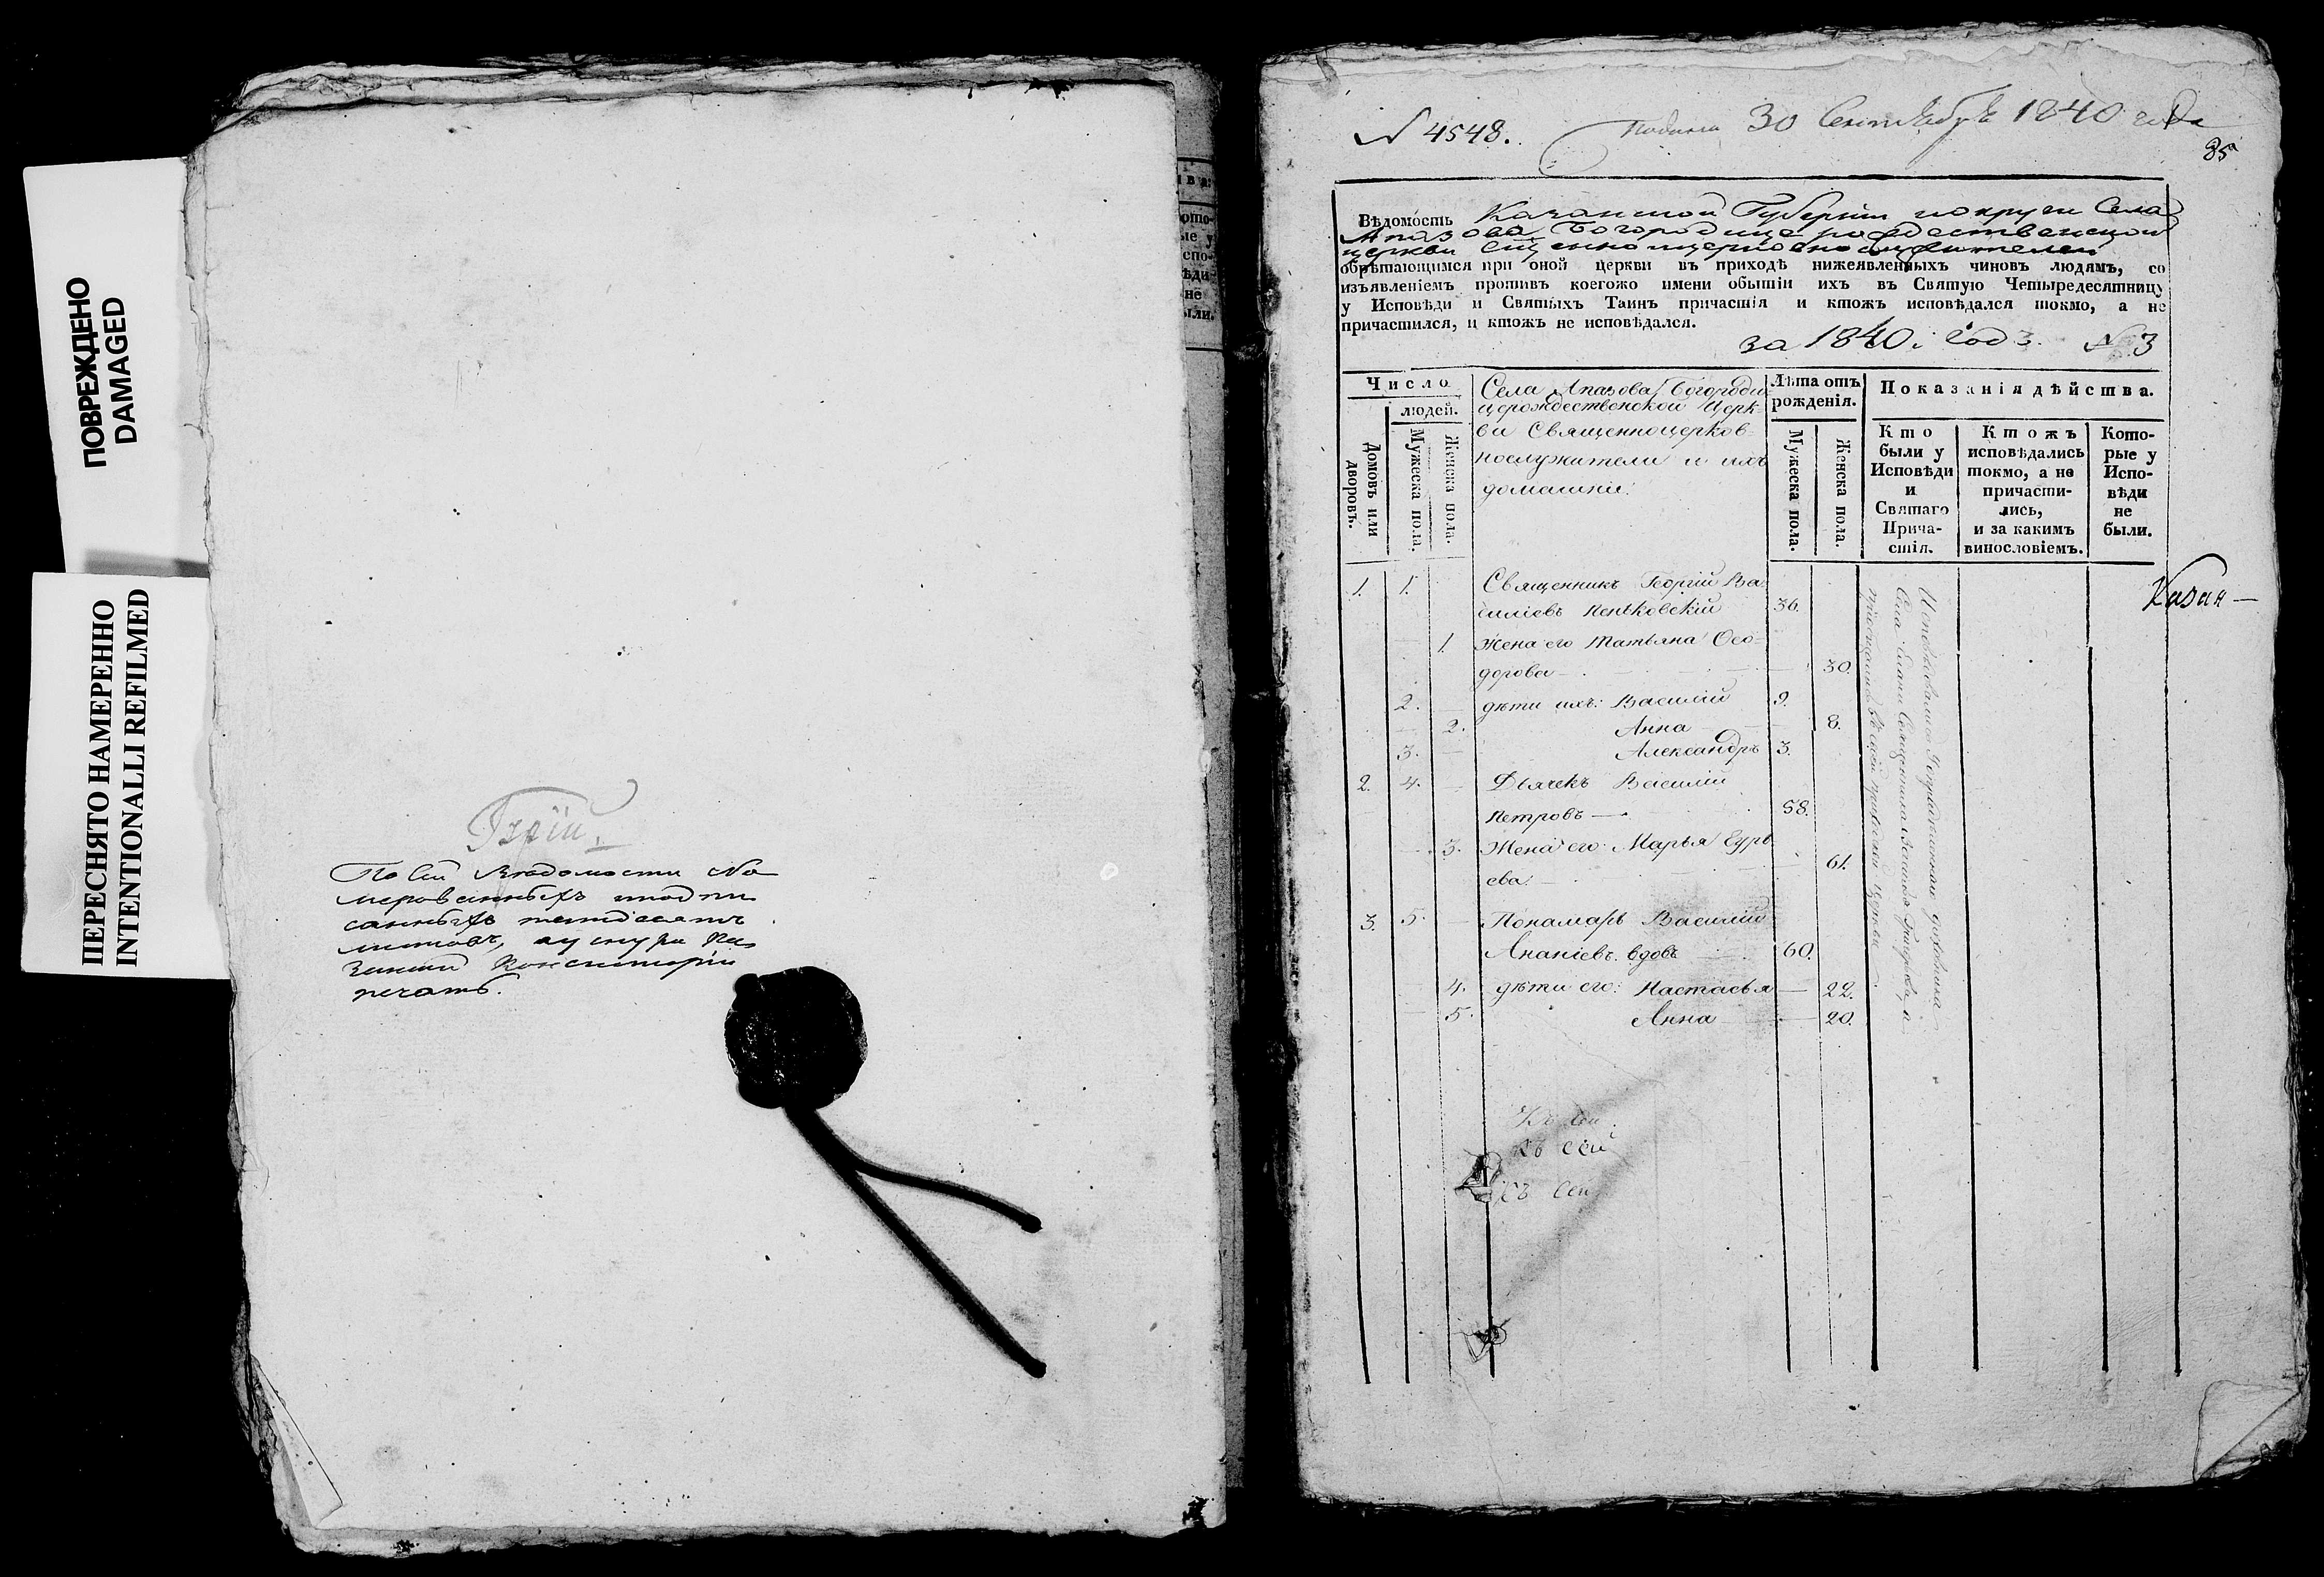 ПОВРЕЖДЕНО
DAMAGED
ПЕРЕСНЯТО НАМЕРЕННО
INTENTIONALLI REFILMED
Гурій.
По сей Ведомости Но
мерованныхъ и подпи
санныхъ
листовъ, а у снура Ка
занской Консисторіи
печать.
№ 4548.
Подана 30 Сентября 1840 года
85
Вѣдомость Казанской Губерніи округи Села
Апазова Богородицерождественской
церкви
обрѣтающимся при оной церкви въ приходѣ нижеявленныхъ чиновъ людямъ, со
изъявленіемъ противъ коегожо имени обытіи ихъ въ Святую Четыредесятницу
у Исповѣди и Святыхъ Таинъ причастія и ктожъ исповѣдался токмо, а не
причастился, и ктожъ не исповѣдался.
за 1840й годъ. № 3
Число
людей.
Домовъ или дворовъ.
Мужеска пола.
Женска пола.
Села Апазова Богороди-
церождественской Церк-
ви Священноцерков-
нослужители и ихъ
домашніе:
Лѣта отъ
рожденія.
Мужеска пола.
Женска пола.
Показанія дѣйства.
Кто
были у
Исповѣди
и
Святаго
Прича-
стія.
Ктожъ
исповѣдались
токмо, а не
причасти-
лись,
и за какимъ
винословіемъ.
Кото-
рые у
Испо-
вѣди
не
были.
1. 1. Священникъ Георгій Ва-
силіевъ Пеньковскій 36.
1. Жена его Татьяна Ѳео-
дорова 30.
2. дѣти ихъ: Василій 9.
2. Анна 8.
3. Александръ 3.
2. 4. Дьячекъ Василій
Петровъ 58.
3. Жена его Марья Гурь-
ева 61.
3. 5. Пономарь Василій
Ананіевъ вдовъ 60.
4. дѣти его: Настасья 22.
5. Анна 20.
Казан
Къ сей
Къ сей